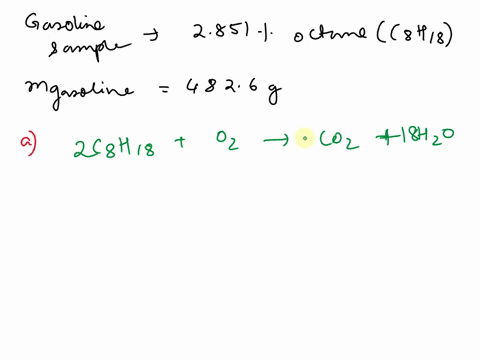 Gasoline sample → 2.851 % octane (C8H18)
mgasoline = 482.6 g
a) 2C8H18 + O2 → CO2 + 18H2O